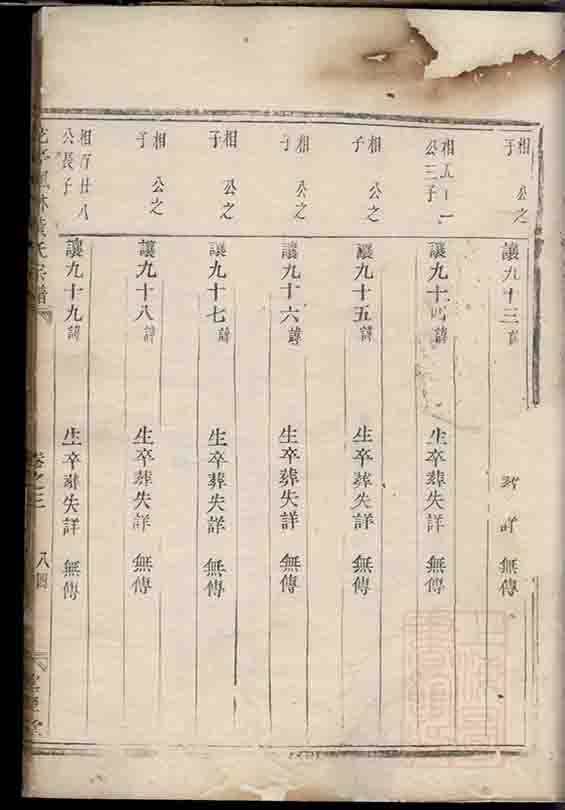 相 公之
子
讓九十三諱
詳 無傳
相五十一
公三子
讓九十四諱
生卒葬失詳 無傳
相 公之
子
讓九十五諱
生卒葬失詳 無傳
相 公之
子
讓九十六諱
生卒葬失詳 無傳
相 公之
子
讓九十七諱
生卒葬失詳 無傳
相 公之
子
讓九十八諱
生卒葬失詳 無傳
相百廿八
公長子
讓九十九諱
生卒葬失詳 無傳
林黃氏宗譜
卷之三
八四
堂